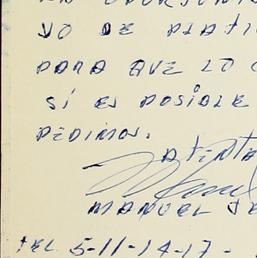 YO DE PLATI
PARA QUE LO
SI ES POSIBLE
PEDIMOS.
ATENTA
MANUEL
TEL 5-11-14-17-